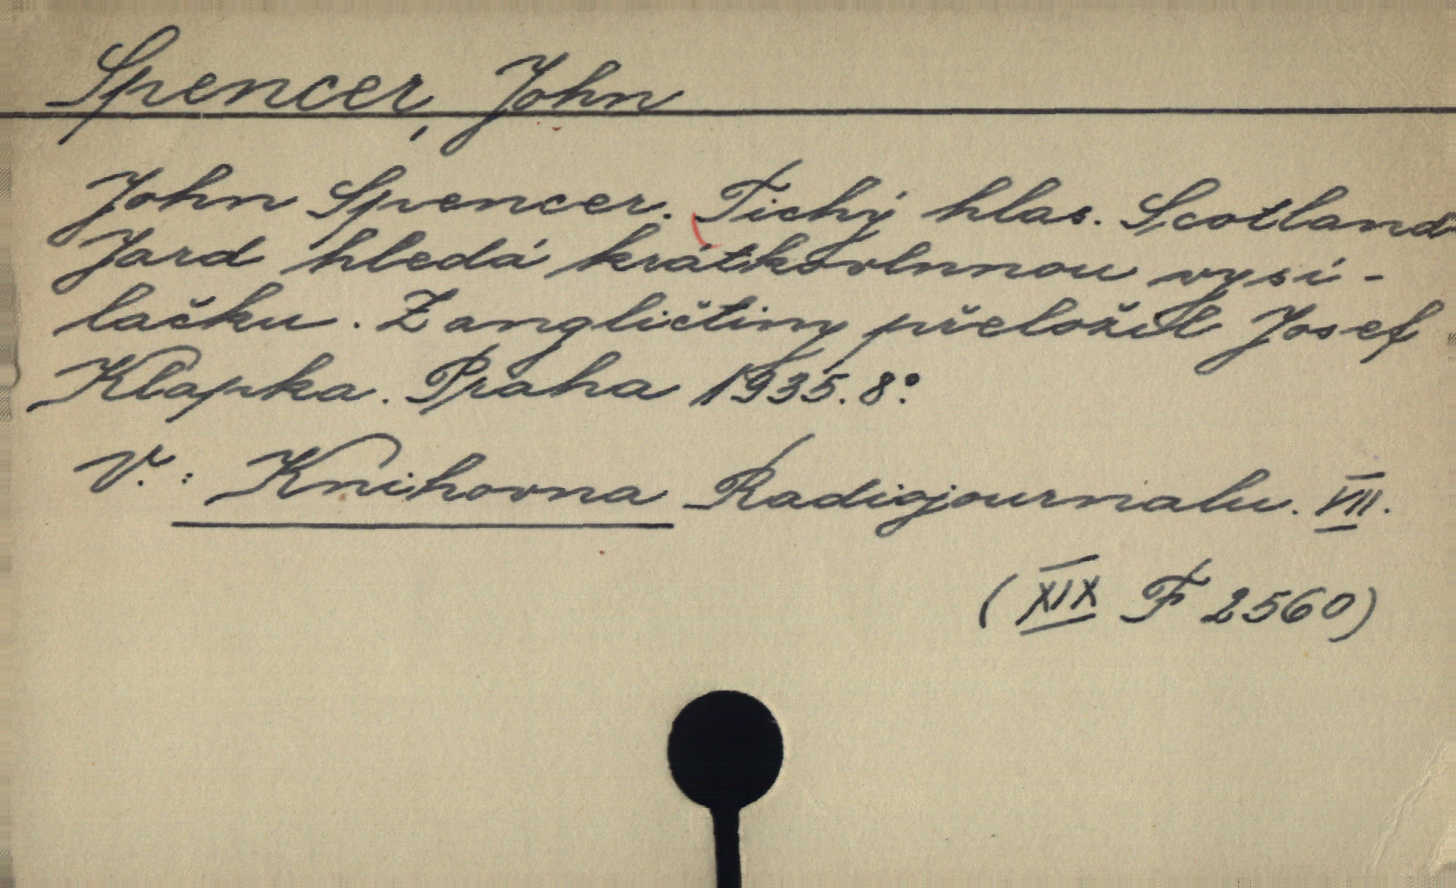 Spencer, John
John Spencer. Tichý hlas. Scotland
Jard hledá krátkovlnnou vysí-
lačku. Z angličtiny přeložil Josef
Klapka. Praha 1935. 8°.
V.: Knihovna Radiojournalu. VII.
(XIX F 2560)